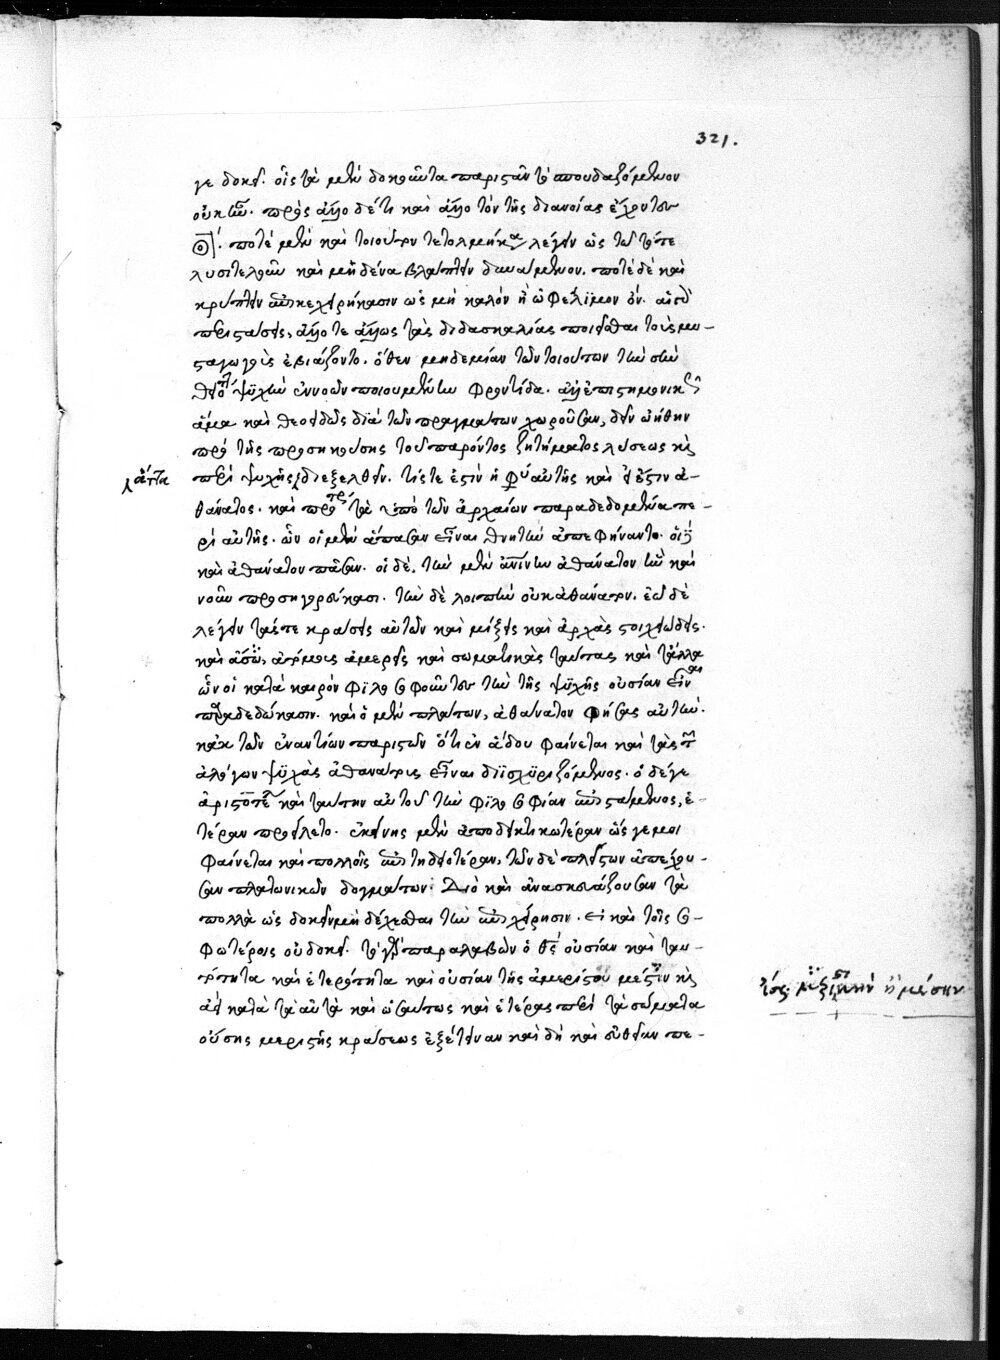 321.
γε δοκεῖ. οἷς τὰ μὲν δοκοῦντα παριστᾶν τὸ σπουδαζόμενον
οὐκ ἦν. πρὸς ἄλλο δέ τι καὶ ἄλλο τὸν τῆς διανοίας
ποτὲ μὲν καὶ τοιοῦτον λέγειν ὡς
λυσιτελοῦν καὶ μηδένα βλάπτειν δυνάμενον. ποτὲ δὲ καὶ
κρύπτειν ἐπικεχειρήκασιν ὡς μὴ καλὸν ἢ ὠφέλιμον ὄν.
ἄλλοτε ἄλλως τὰς διδασκαλίας ποιεῖσθαι τοὺς μυ-
σταγωγοὺς ἐβιάζοντο. ὅθεν μηδεμίαν τῶν τοιούτων
ψυχῶν ποιουμένων φροντίδα.
ἅμα καὶ θεοειδῶς διὰ τῶν πραγμάτων χωροῦσαν, δεῖν ᾠήθην
πρὸ τῆς προσηκούσης τοῦ παρόντος ζητήματος λύσεως καὶ
ἄττα
περὶ ψυχῆς διεξελθεῖν. τίς τέ ἐστιν ἡ φύσις αὐτῆς καὶ εἰ ἔστιν ἀ-
θάνατος. καὶ τὰ ὑπὸ τῶν ἀρχαίων παραδεδομένα πε-
ρὶ αὐτῆς. ὧν οἱ μὲν ἅπασαν εἶναι θνητὴν ἀπεφήναντο. οἱ δὲ
καὶ ἀθάνατον πᾶσαν. οἱ δὲ, τὴν μὲν ἀθάνατον ἣν καὶ
νοῦν προσηγορεύκασι. τὴν δὲ λοιπὴν οὐκ ἀθάνατον. ἐῶ δὲ
λέγειν τάς τε κράσεις αὐτῶν καὶ μίξεις καὶ ἀρχὰς στοιχειώδεις.
καὶ ἀτόμους ἀμερεῖς καὶ σωματικὰς ταύτας καὶ τἄλλα
ὧν οἱ κατὰ καιρὸν φιλοσοφοῦντες τὴν τῆς ψυχῆς οὐσίαν εἶναι
παραδεδώκασιν. καὶ ὁ μὲν πλάτων, ἀθάνατον φήσας αὐτήν.
κἀκ τῶν ἐναντίων παριστῶν ὅτι ἐν ᾅδου φαίνεται καὶ τὰς τῶν
ἀλόγων ψυχὰς ἀθανάτους εἶναι διϊσχυριζόμενος. ὁ δέ γε
ἀριστοτέλης καὶ ταύτην αὐτοῦ τὴν φιλοσοφίαν ἐπιστάμενος, ἑ-
τέραν προείλετο. ἐκείνης μὲν ἀποδεικτικωτέραν ὥς γε μοι
φαίνεται καὶ πολλοῖς ἐπιτηδειοτέραν, τῶν δὲ πλείστων ἀπέχου-
σαν πλατωνικῶν δογμάτων. Διὸ καὶ ἀνασκευάζουσαν τὰ
πολλὰ ὡς δοκεῖν μὴ δέχεσθαι τὴν ἐπιχείρησιν. εἰ καὶ τοῖς σο-
φωτέροις οὐ δοκεῖ. τὸ γὰρ παραλαβὼν ὁ θεὸς οὐσίαν καὶ ταυ-
τότητα καὶ ἑτερότητα καὶ οὐσίαν τῆς ἀμερίστου καὶ
ἀεὶ κατὰ τὰ αὐτὰ καὶ ὡσαύτως καὶ ἑτέρας περὶ τὰ σώματα
οὔσης μεριστῆς κράσεως καὶ δὴ καὶ εὐθεῖαν πε-